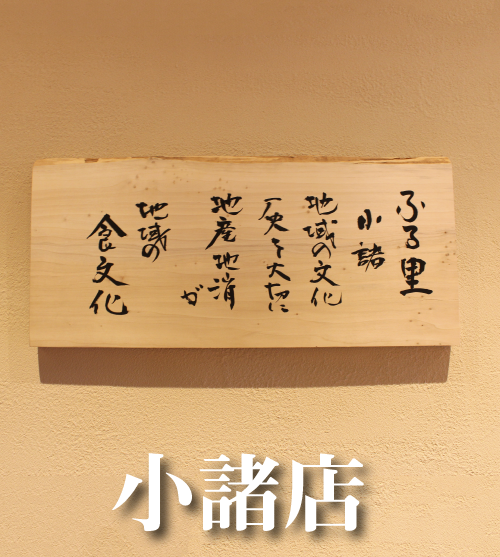 ふる里
小諸
地域の文化
歴史を大切に
地産地消
が
地域の
食文化
小諸店